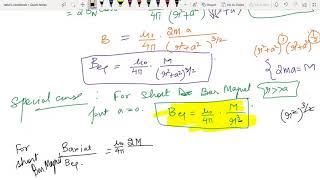 B = μ₀/4π · 2Ma/(r²+a²)^3/2
Beq = μ₀/4π · M/(r²+a²)^3/2
(r²+a²)
{ 2ma = M
Special case : For Short Bar Magnet r>>a
put a = 0.
Beq = μ₀/4π · M/r²
(r²)^3/2
For short Bar Magnet Baxial/Beq. = μ₀/4π 2M